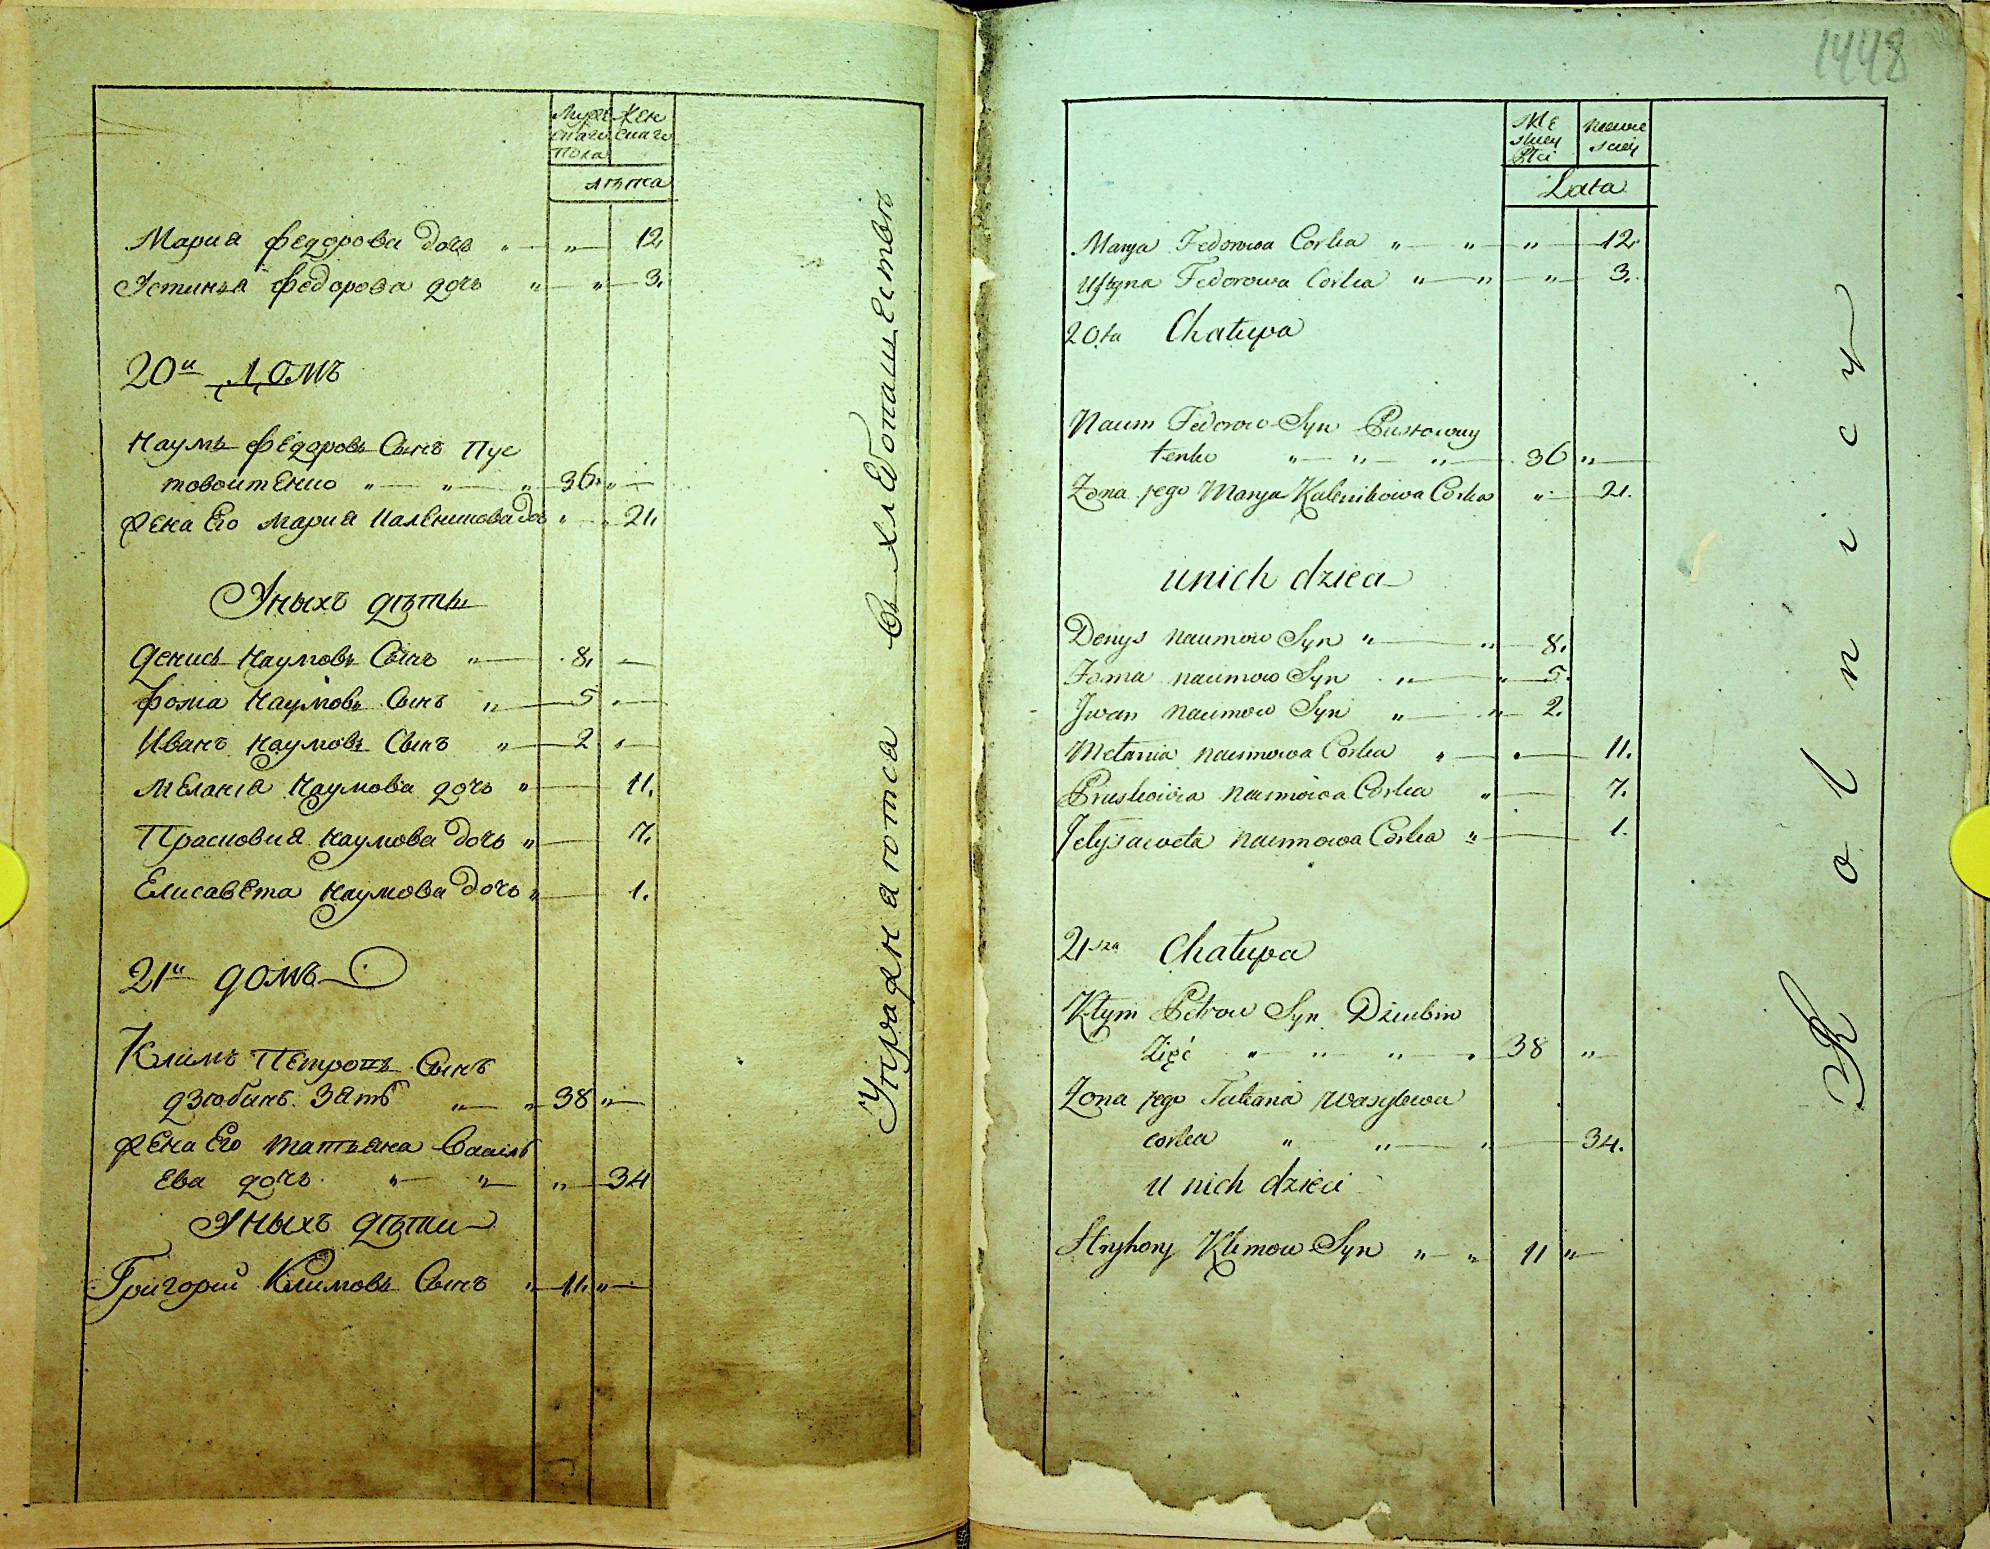 Мужескаго Пола
Женскаго
лѣта
Мариа Федорова дочь " — " — 12.
Устиньа Федорова дочь " — " — 3.
20й Домъ
Наумъ Федоровъ Сынъ Пус
товойтенко " — " — " 36. " —
Жена Его Мариа Калениковадоч " — " 21.
Уныхъ дѣти
Денисъ Наумовъ Сынъ " — 8. —
Фома Наумовъ Сынъ " — 5 " —
Иванъ Наумовъ Сынъ " — 2 " —
Меланиа Наумова дочь " — 11.
Прасковиа Наумова дочь " — 7.
Елисавета Наумова дочь " — 1.
21й домъ
Климъ Петровъ Сынъ
дзюбинъ зать " — " 38 " —
Жена Его Татьяна Василь
ева дочь " — " — " — 34
Уныхъ дѣти
Григорий Климовъ Сынъ " — 11. " —
Упражнаютса въ хлебопашествѣ
1448
Mę skiey Płci
niewie sciey
Lata
Marya Fedorowa Corka " — " — " — 12.
Ustyna Fedorowa Corka " — " — " — 3.
20ta Chałupa
Naum Fedorow Syn Pustowoy
tenko " — " — " — 36 " —
Żona jego Marya Kalenikowa Corka " — 21.
unich dzieci
Denys Naumow Syn " — " — 8.
Foma Naumow Syn " — " — 5.
Jwan Naumow Syn " — " — 2.
Melania Naumowa Corka " — " — 11.
Praskowia Naumowa Corka " — 7.
Jelysaweta Naumowa Corka " — 1.
21sza Chałupa
Kłym Petrow Syn Dziubin
Zięć " — " — " — " 38 "
Żona jego Tatiana Wasylewa
corka " — " — " — 34.
u nich dzieci
Hryhory Klimow Syn " — " 11 " —
Rolnicy